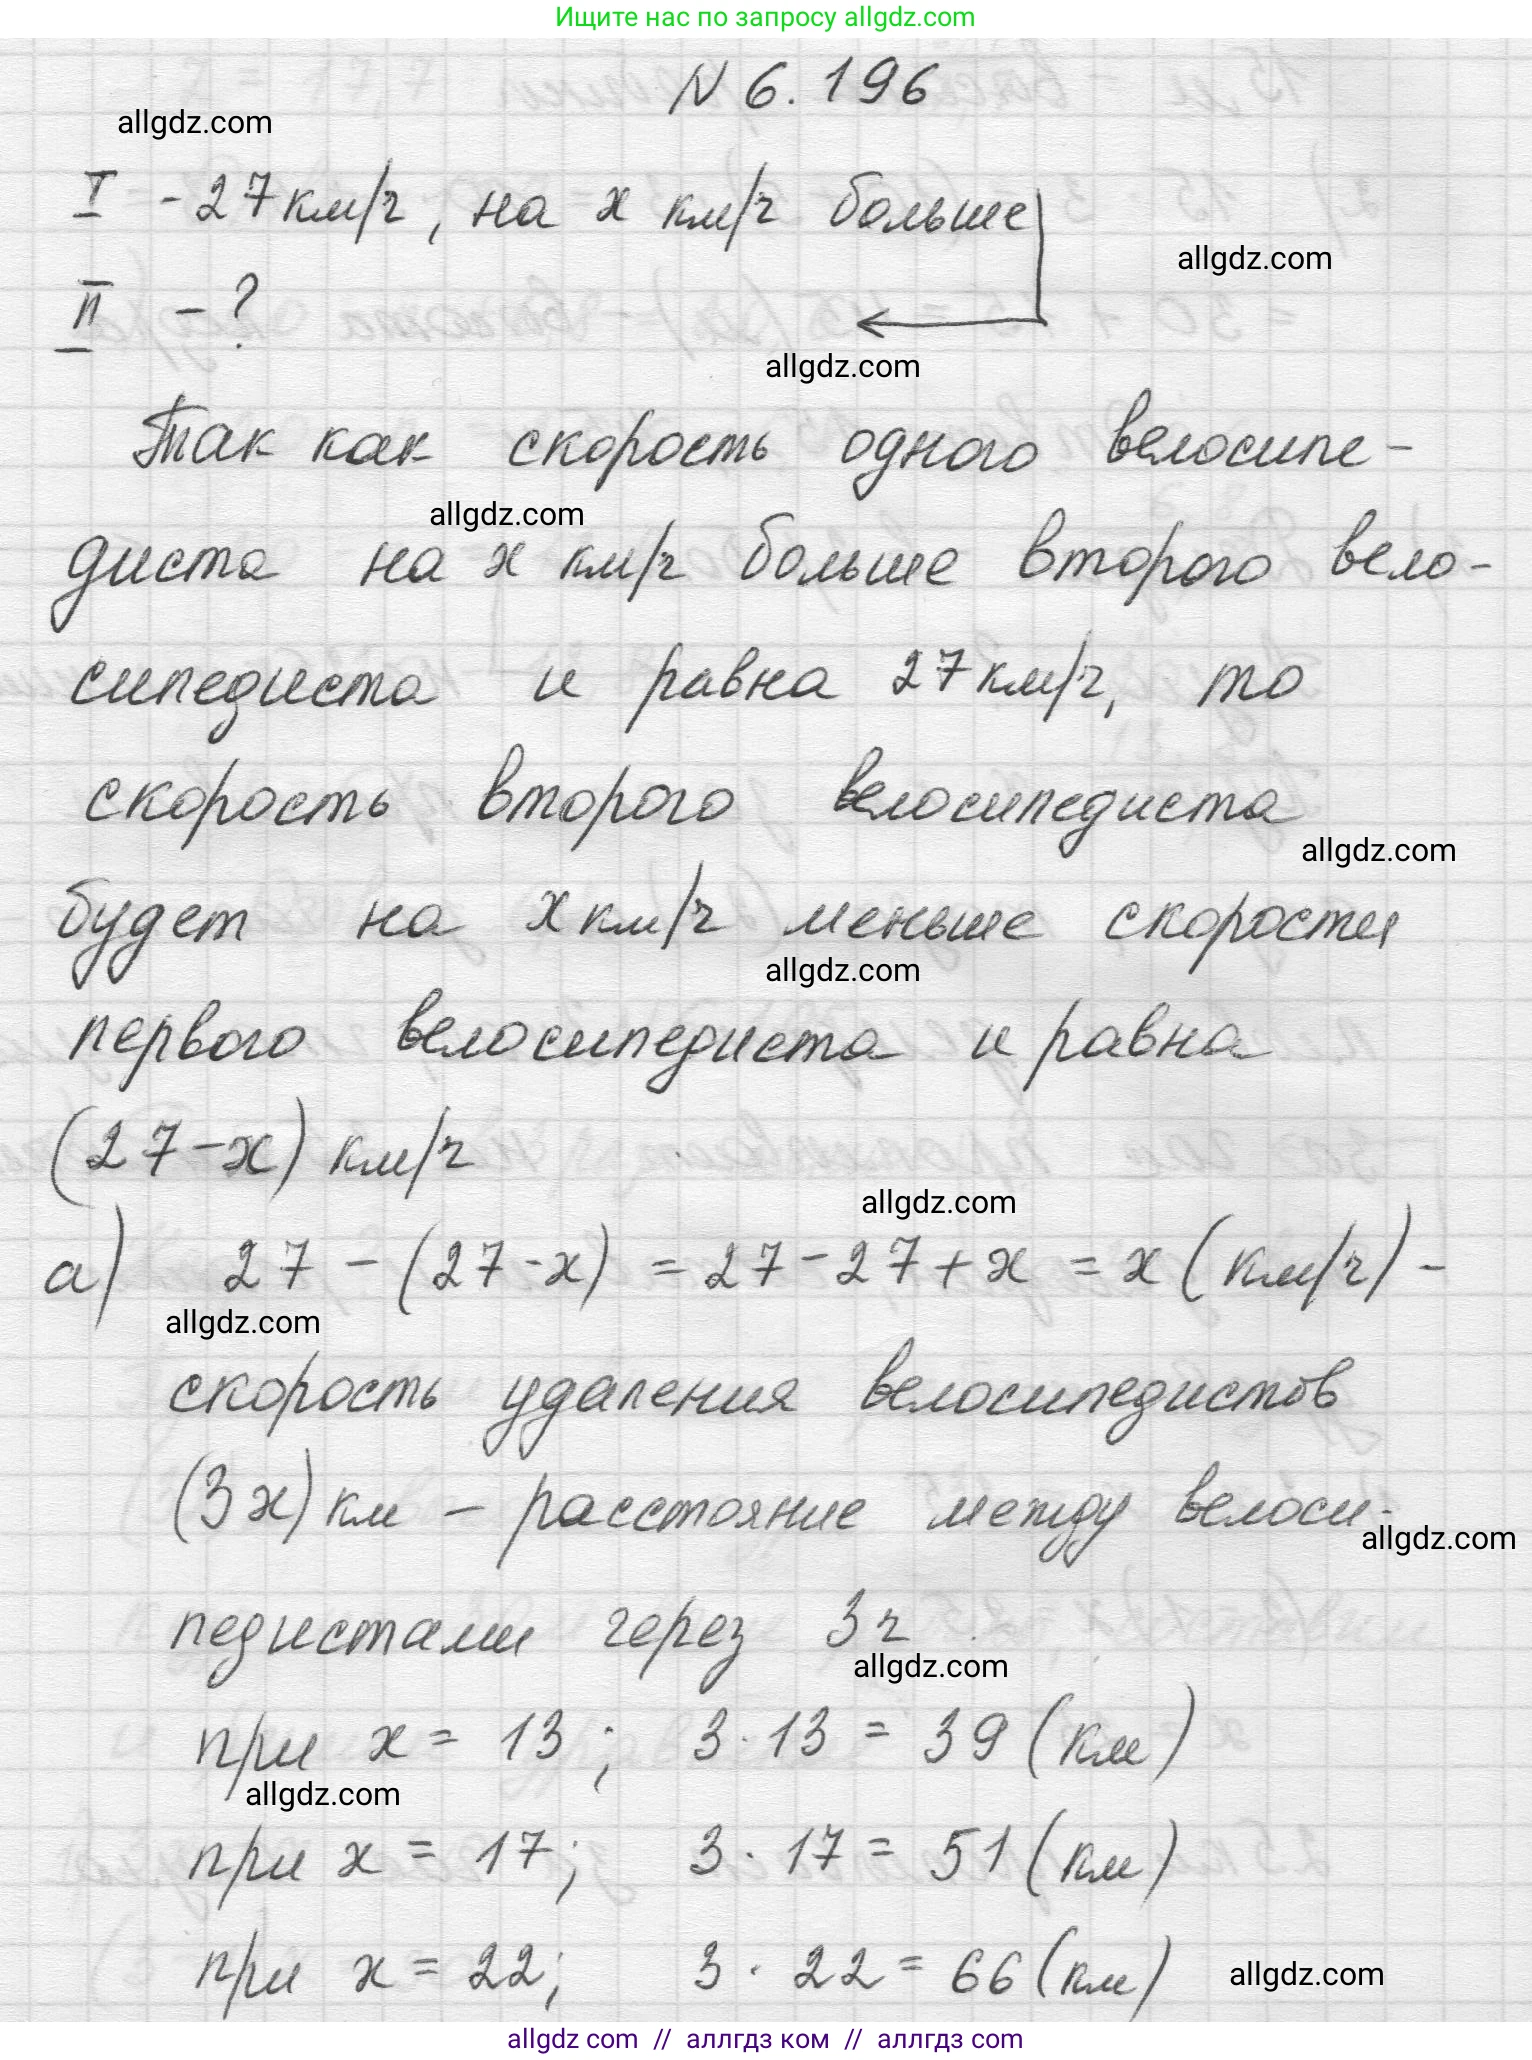 Ищите нас по запросу allgdz.com
N 6.196
allgdz.com
I - 27 км/ч, на x км/ч больше
allgdz.com
II - ?
allgdz.com
Так как скорость одного велосипе-
allgdz.com
диста на x км/ч больше второго вело-
сипедиста и равна 27 км/ч, то
скорость второго велосипедиста
allgdz.com
будет на x км/ч меньше скорости
allgdz.com
первого велосипедиста и равна
(27-x) км/ч
allgdz.com
а) 27 - (27-x) = 27-27+x = x (км/ч) -
allgdz.com
скорость удаления велосипедистов
(3x) км - расстояние между велоси-
allgdz.com
педистами через 3 ч
allgdz.com
при x = 13; 3·13 = 39 (км)
allgdz.com
при x = 17; 3·17 = 51 (км)
при x = 22; 3·22 = 66 (км)
allgdz.com
allgdz com // аллгдз ком // аллгдз com